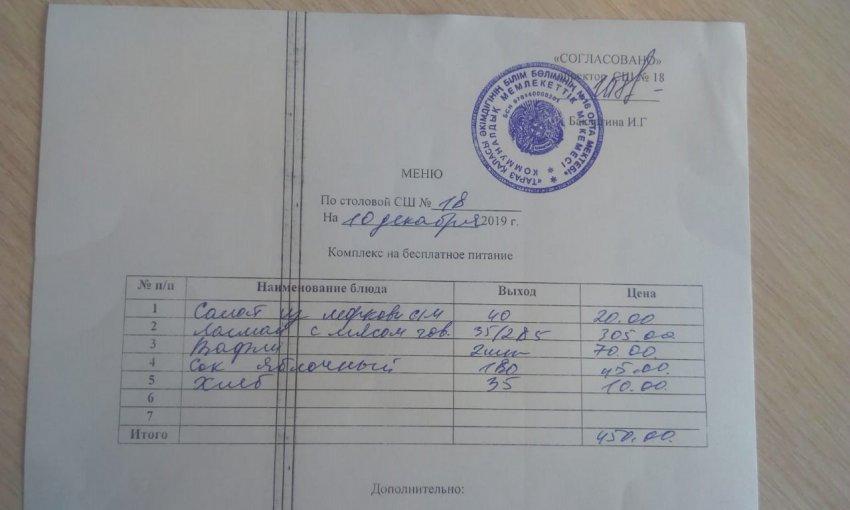 «СОГЛАСОВАНО»
Директор СШ № 18
Бакитина И.Г
«ТАРАЗ ҚАЛАСЫ ӘКІМДІГІНІҢ БІЛІМ БӨЛІМІНІҢ №18 ОРТА МЕКТЕБІ»
КОММУНАЛДЫҚ МЕМЛЕКЕТТІК МЕКЕМЕСІ
МЕНЮ
По столовой СШ № 18
На 10 декабря 2019 г.
Комплекс на бесплатное питание
№ п/п Наименование блюда Выход Цена
1 Салат из моркови с/м 40 20.00
2 Лагман с мясом гов. 35/285 305.00
3 Вафли 2шт 70.00
4 Сок яблочный 180 45.00.
5 Хлеб 35 10.00.
6
7
Итого 450.00.
Дополнительно: